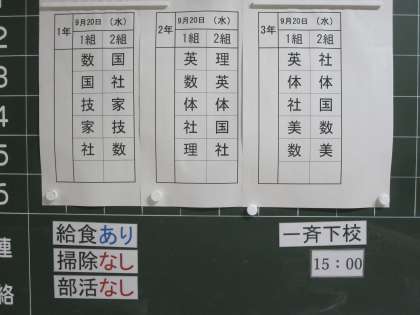 1年 9月20日 （水）
1組 2組
数 国
国 社
技 家
家 技
社 数
2年 9月20日 （水）
1組 2組
英 理
数 英
体 体
社 国
理 社
3年 9月20日 （水）
1組 2組
英 社
体 体
社 国
美 数
数 美
2
3
4
5
6
連
絡
給食あり
掃除なし
部活なし
一斉下校
15：00